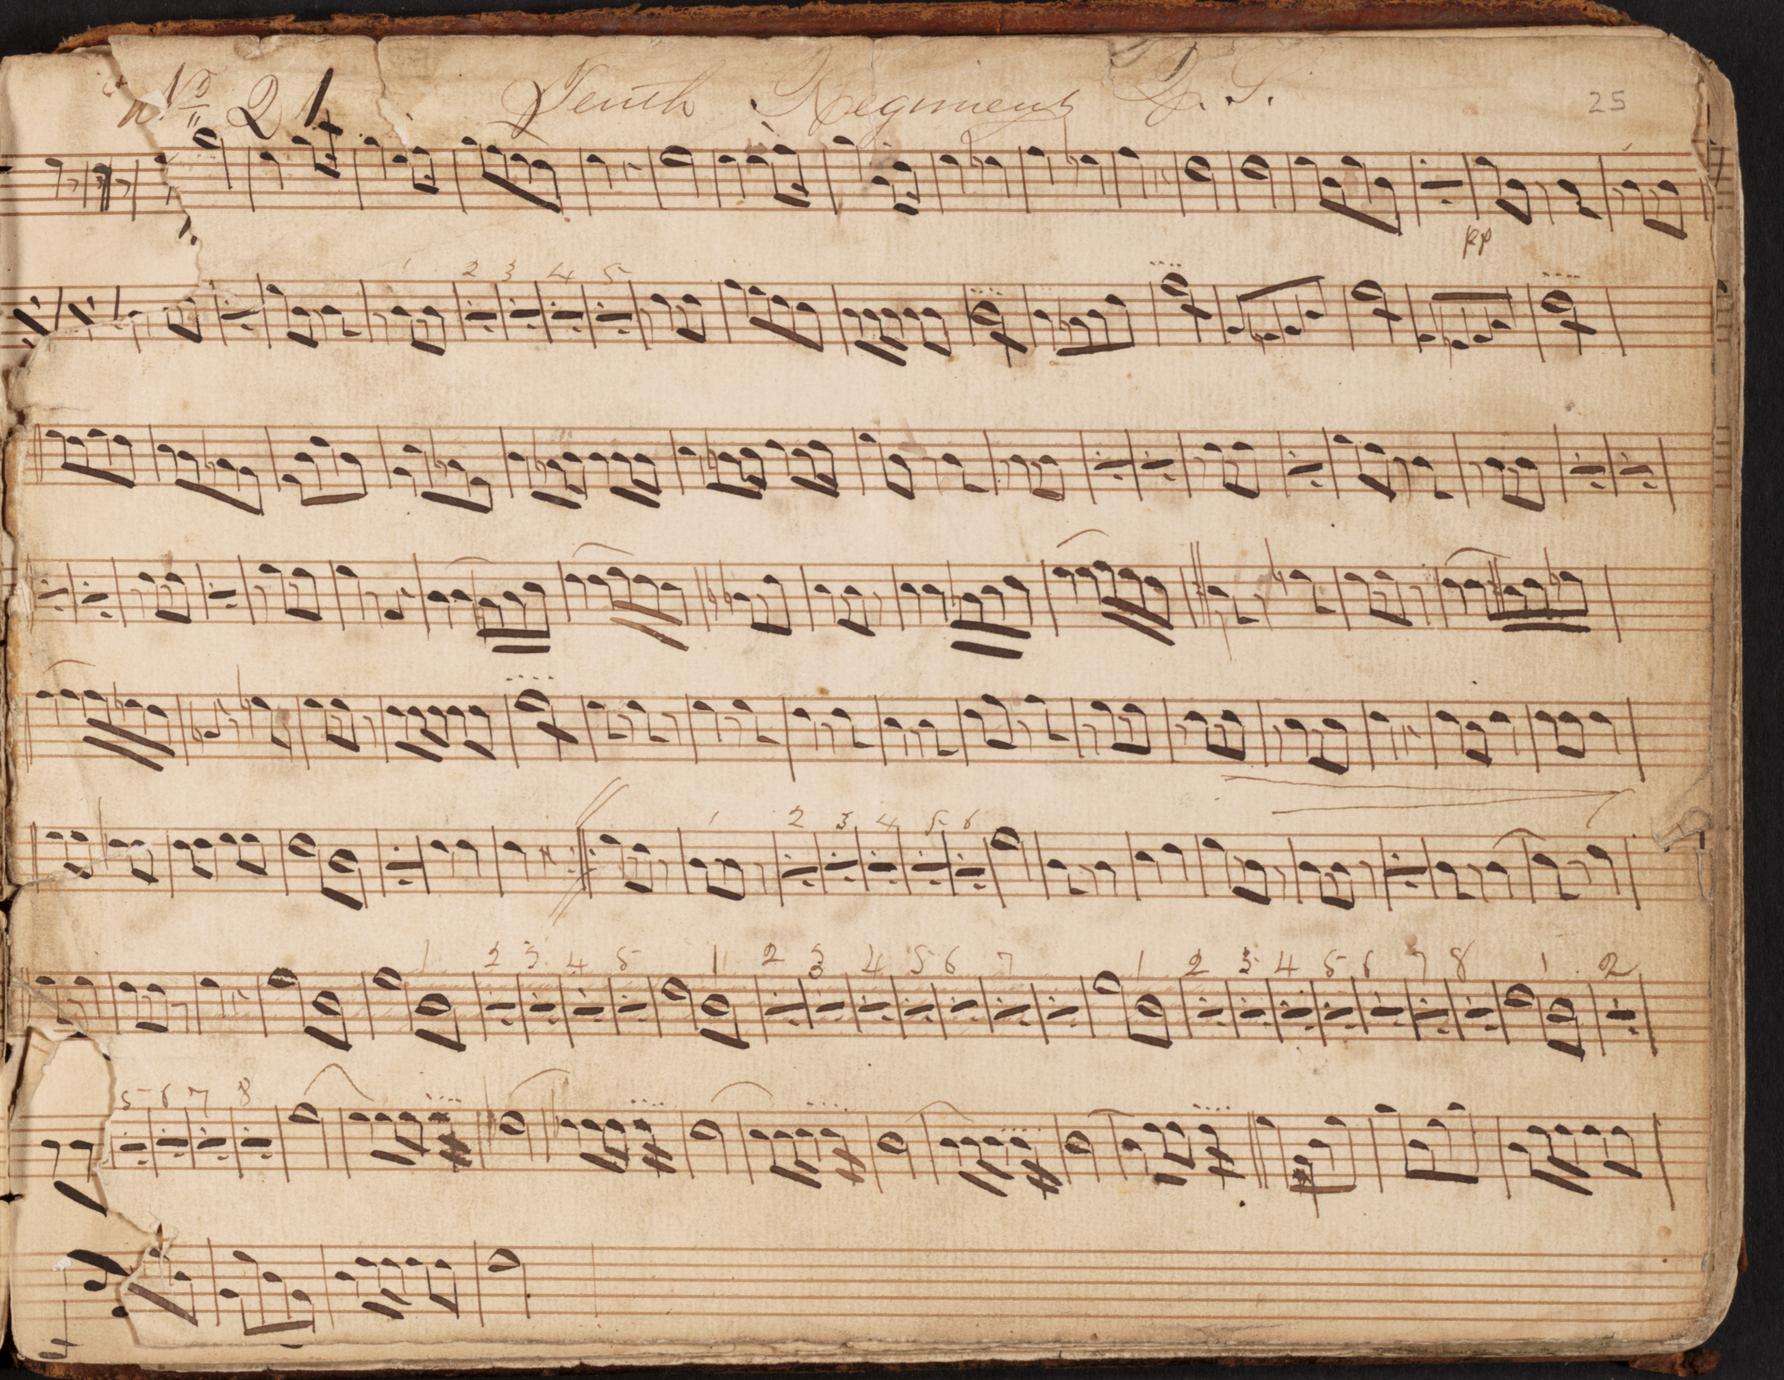 No 21 Tenth Regiment Q. S. 25
pp
1 2 3 4 5
1 2 3 4 5 6
1 2 3 4 5 1 2 3 4 5 6 7 1 2 3 4 5 6 7 8 1 2
5 6 7 8